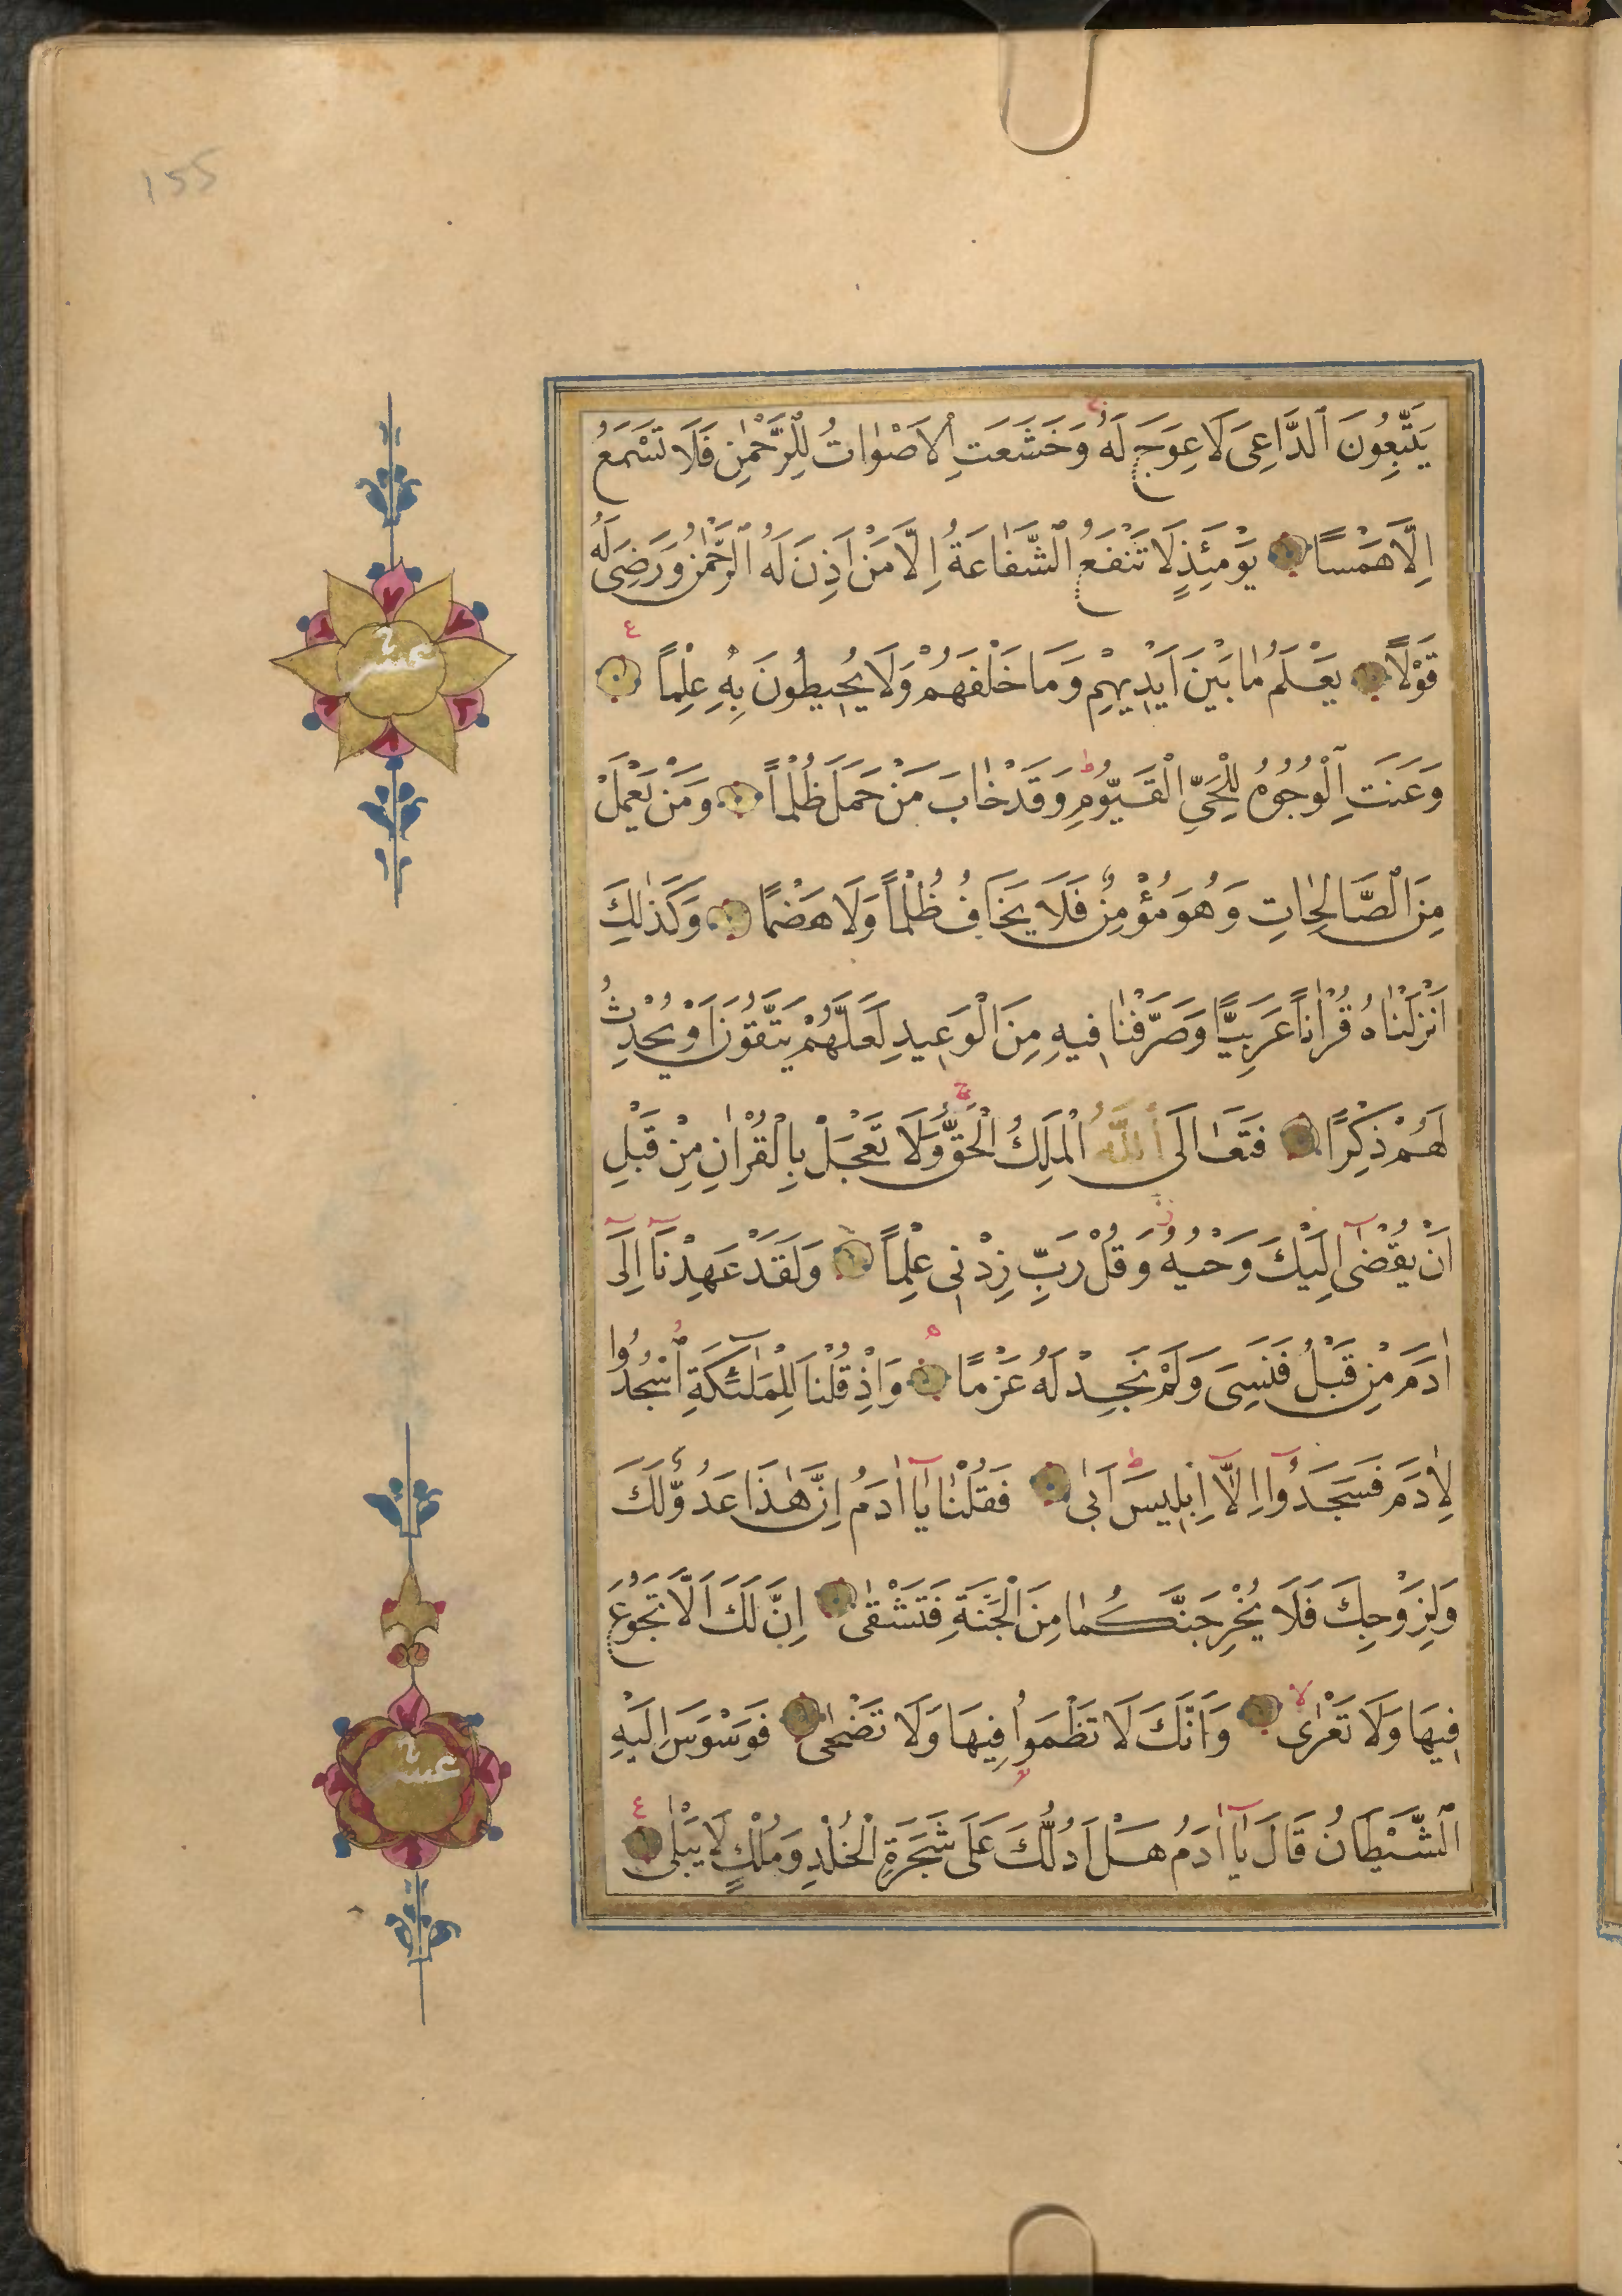 155
يَتَّبِعُونَ ٱلدَّاعِىَ لَا عِوَجَ لَهُ وَخَشَعَتِ ٱلْاَصْوَاتُ لِلرَّحْمٰنِ فَلَا تَسْمَعُ
اِلَّا هَمْسًا يَوْمَئِذٍ لَا تَنْفَعُ ٱلشَّفَاعَةُ اِلَّا مَنْ اَذِنَ لَهُ ٱلرَّحْمٰنُ وَرَضِىَ لَهُ
قَوْلًا يَعْلَمُ مَا بَيْنَ اَيْدِيهِمْ وَمَا خَلْفَهُمْ وَلَا يُحِيطُونَ بِهِ عِلْمًا
وَعَنَتِ ٱلْوُجُوهُ لِلْحَىِّ ٱلْقَيُّومِ وَقَدْ خَابَ مَنْ حَمَلَ ظُلْمًا وَمَنْ يَعْمَلْ
مِنَ ٱلصَّالِحَاتِ وَهُوَ مُؤْمِنٌ فَلَا يَخَافُ ظُلْمًا وَلَا هَضْمًا وَكَذٰلِكَ
اَنْزَلْنَاهُ قُرْاٰنًا عَرَبِيًّا وَصَرَّفْنَا فِيهِ مِنَ ٱلْوَعِيدِ لَعَلَّهُمْ يَتَّقُونَ اَوْ يُحْدِثُ
لَهُمْ ذِكْرًا فَتَعَالَى ٱللّٰهُ ٱلْمَلِكُ ٱلْحَقُّ وَلَا تَعْجَلْ بِالْقُرْاٰنِ مِنْ قَبْلِ
اَنْ يُقْضٰٓى اِلَيْكَ وَحْيُهُ وَقُلْ رَبِّ زِدْنِى عِلْمًا وَلَقَدْ عَهِدْنَٓا اِلٰٓى
اٰدَمَ مِنْ قَبْلُ فَنَسِىَ وَلَمْ نَجِدْ لَهُ عَزْمًا وَاِذْ قُلْنَا لِلْمَلٰٓئِكَةِ ٱسْجُدُوا
لِاٰدَمَ فَسَجَدُٓوا اِلَّٓا اِبْلِيسَ اَبٰى فَقُلْنَا يَٓا اٰدَمُ اِنَّ هٰذَا عَدُوٌّ لَكَ
وَلِزَوْجِكَ فَلَا يُخْرِجَنَّكُمَا مِنَ ٱلْجَنَّةِ فَتَشْقٰى اِنَّ لَكَ اَلَّا تَجُوعَ
فِيهَا وَلَا تَعْرٰى وَاَنَّكَ لَا تَظْمَؤُا فِيهَا وَلَا تَضْحٰى فَوَسْوَسَ اِلَيْهِ
ٱلشَّيْطَانُ قَالَ يَٓا اٰدَمُ هَلْ اَدُلُّكَ عَلٰى شَجَرَةِ ٱلْخُلْدِ وَمُلْكٍ لَا يَبْلٰى
عشر
عشر